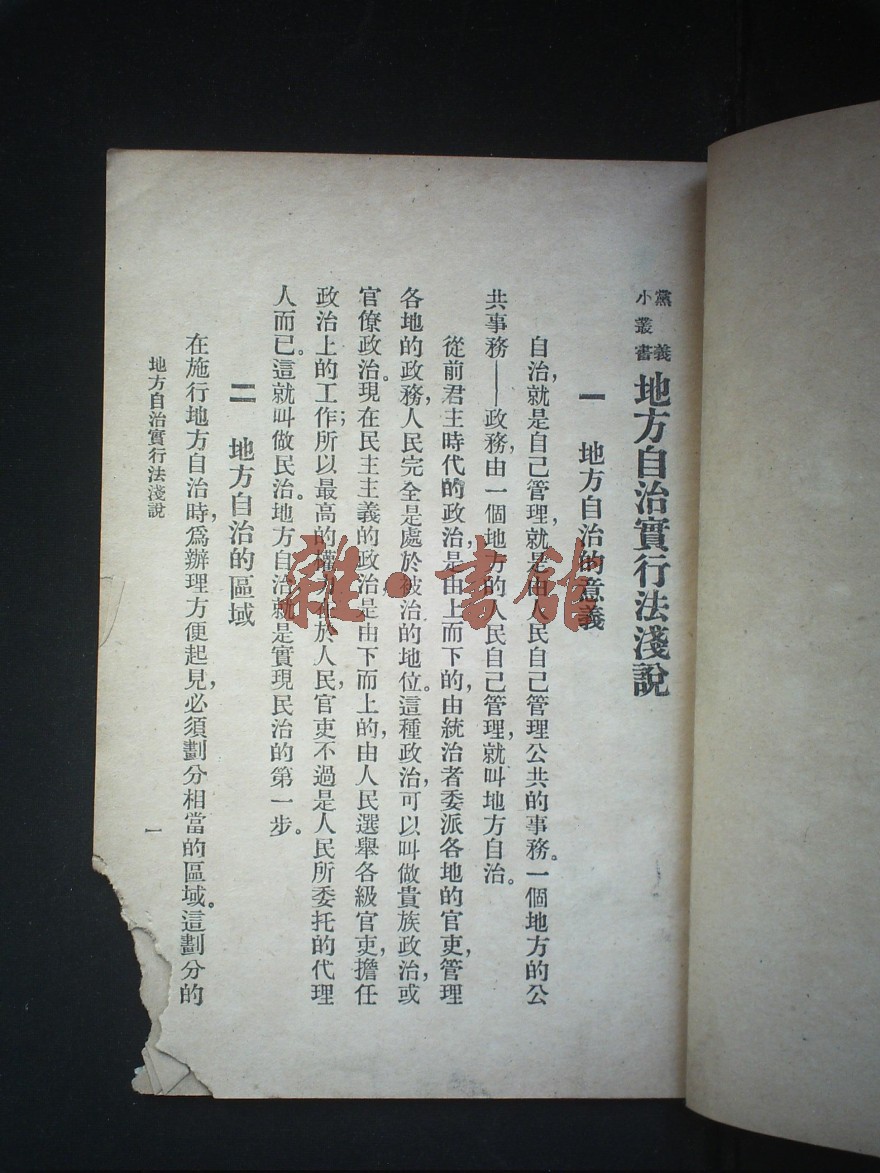 黨義小叢書
地方自治實行法淺說
一　地方自治的意義
自治,就是自己管理,就是由人民自己管理公共的事務。一個地方的公
共事務——政務,由一個地方的人民自己管理,就叫地方自治。
從前君主時代的政治,是由上而下的,由統治者委派各地的官吏,管理
各地的政務,人民完全是處於被治的地位。這種政治,可以叫做貴族政治,或
官僚政治。現在民主主義的政治是由下而上的,由人民選舉各級官吏,擔任
政治上的工作;所以最高的權力在於人民,官吏不過是人民所委托的代理
人而已。這就叫做民治。地方自治就是實現民治的第一步。
二　地方自治的區域
在施行地方自治時,爲辦理方便起見,必須劃分相當的區域。這劃分的
地方自治實行法淺說
一
雜·書館